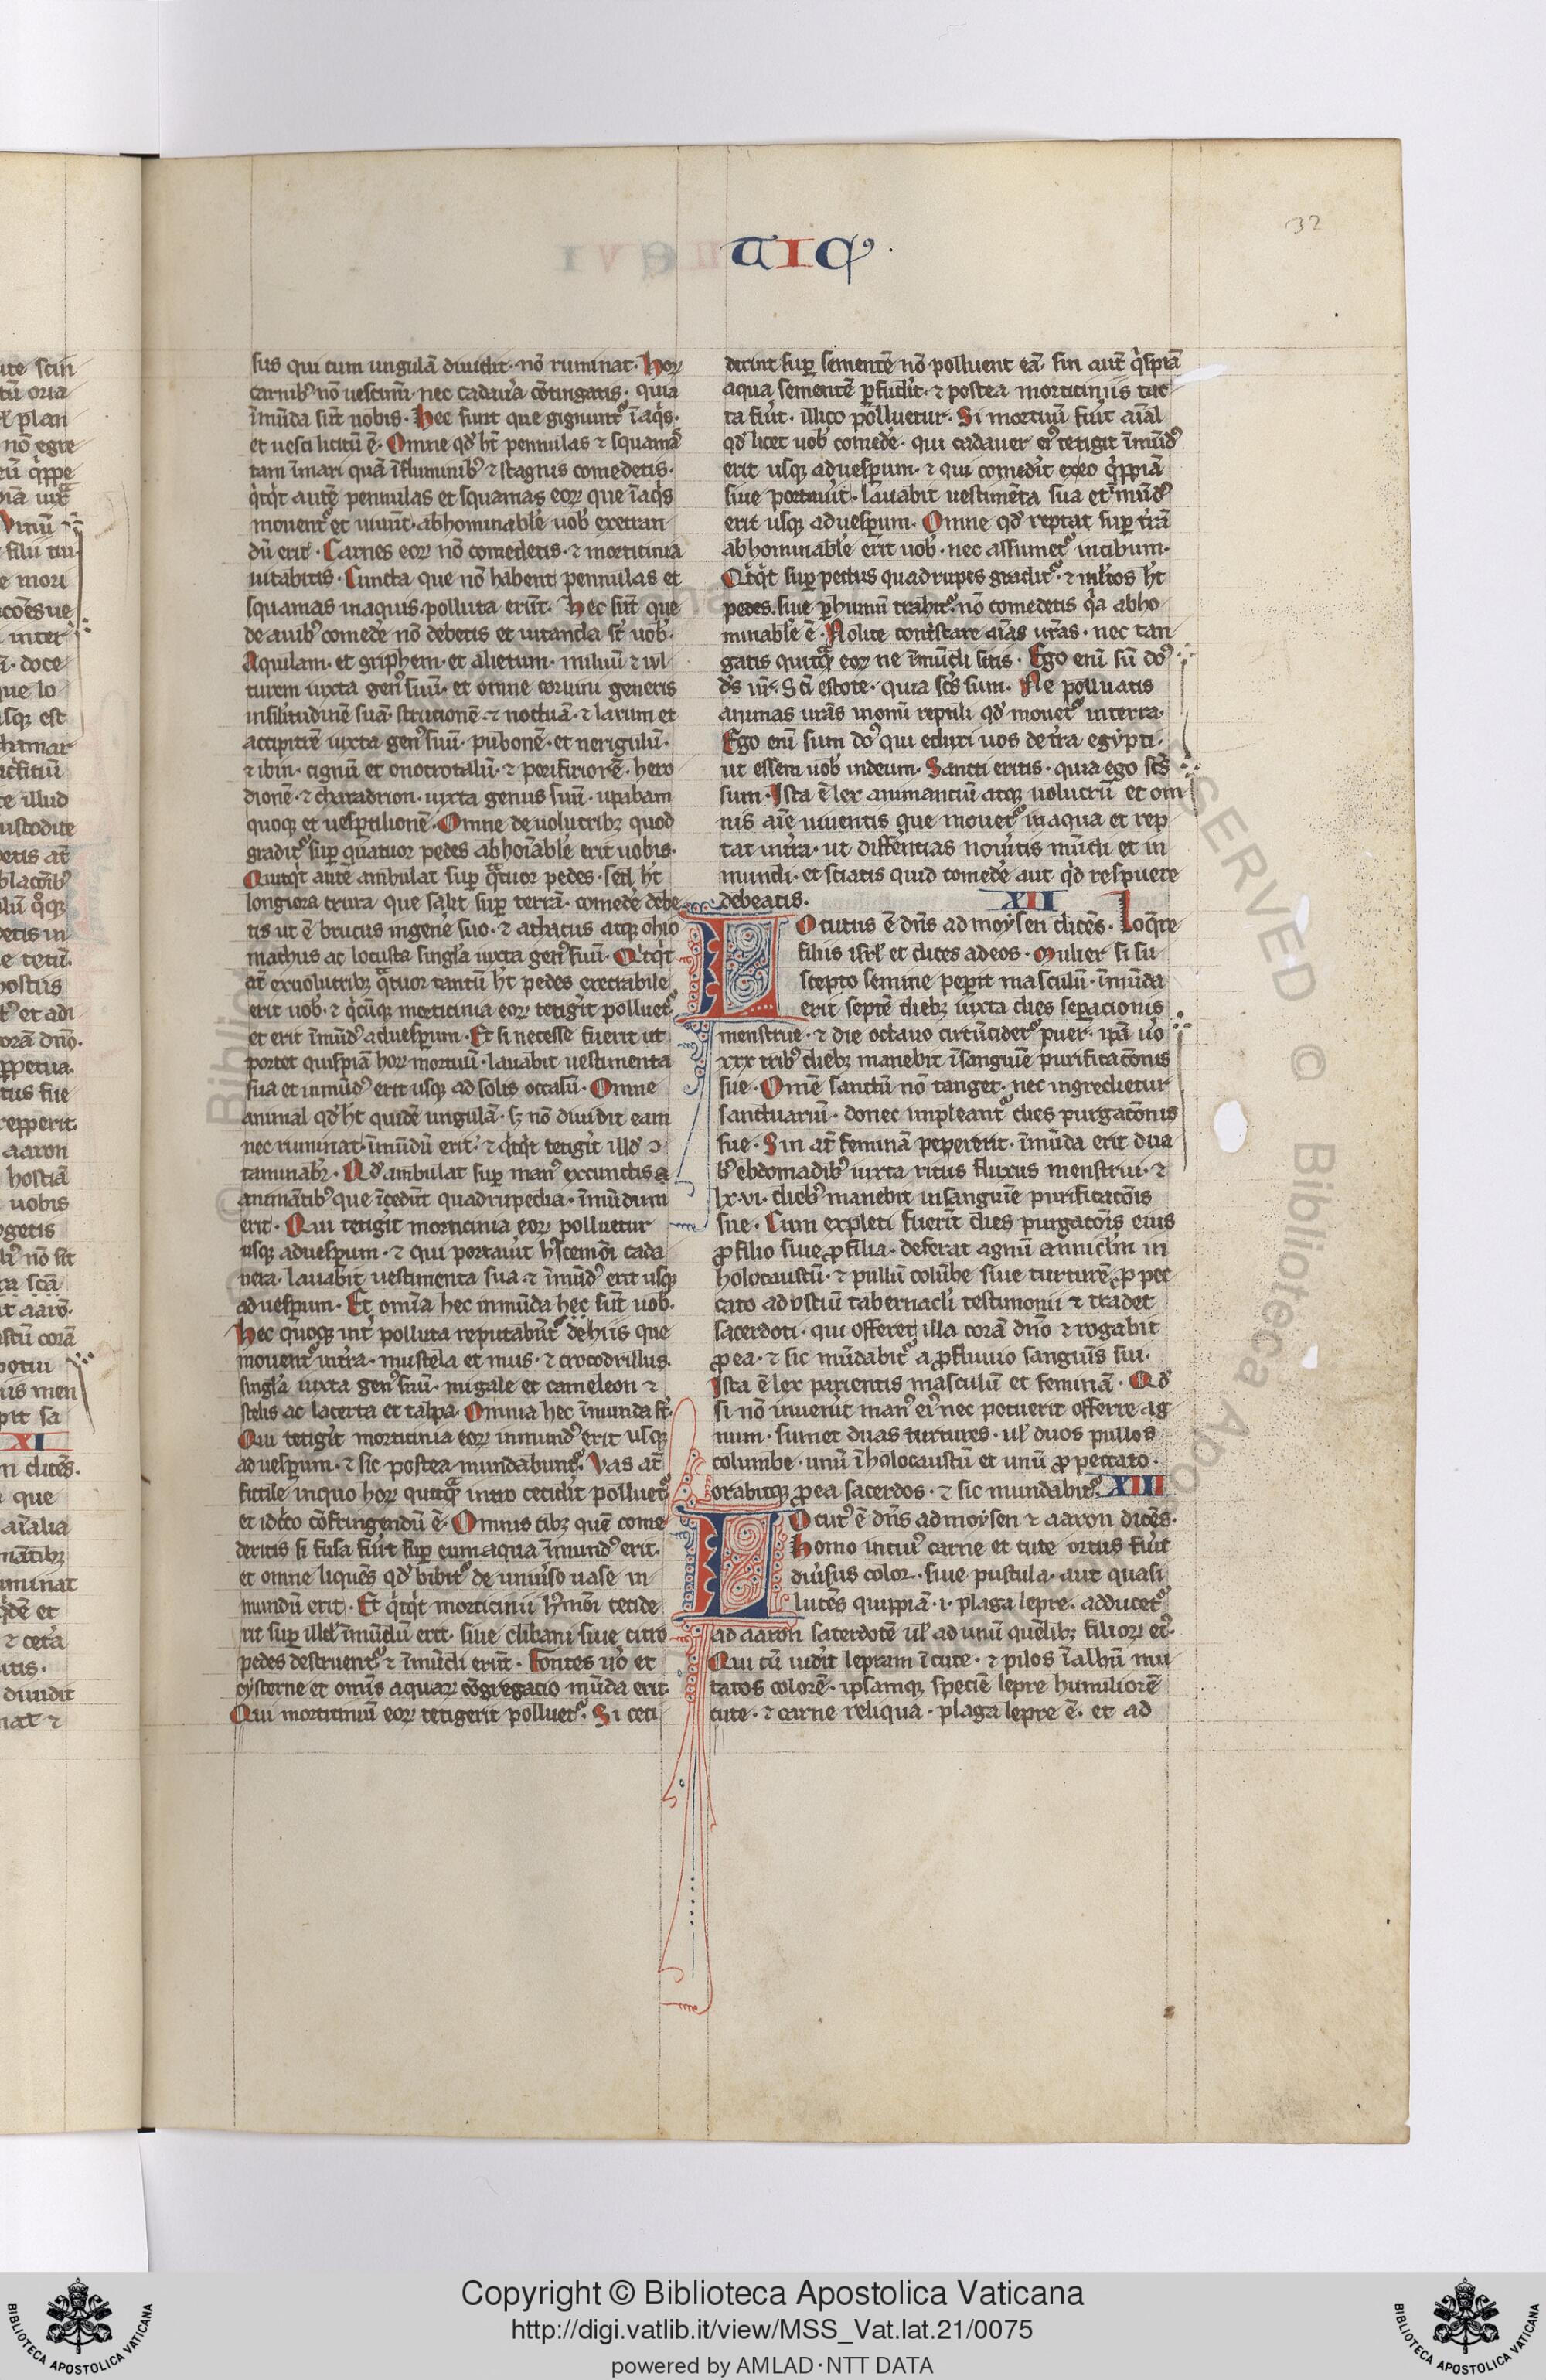 TICꝰ
32
sus qui cum ungulā diuidit· nō ruminat· Hoꝝ
carnibꝰ nō uescimī· nec cadaůa ↄ̄tingatis· quia
īmūda sūt uobis· Hec sunt que gignunt᷑ ī aq̇s·
et uesci licitū ē· Omne qd̓ hꝫ pennulas ⁊ squamas
tam ī mari quā ī fluminibꝰ ⁊ stagnis comedetis·
q̇cq̇t autē pennulas et squamas eoꝝ que ī aq̇s
mouent᷑ et uiuūt· abhominabłe uob̓ execran
dū erit· Carnes eoꝝ nō comedetis· ⁊ morticinia
uitabitis· Cuncta que nō habent pennulas et
squamas in aquis· polluta erūt· Hec sūt que
de auibꝰ comedē nō debetis et uitanda st̄ uob̓·
Aquilam· et griphem· et alietum· miluū ⁊ uul
turem iuxta genꝰ suū· et omne coruini generis
in similitudinē suā· strucionē· ⁊ noctuā· ⁊ larum et
accipitrē iuxta genꝰ suū· pubonē· et nerigulū·
⁊ ibin· cignū et onocrotalū· ⁊ porifiriorē· hero
dionē· ⁊ charadrion· iuxta genus suū· upabam
quoqꝫ et uesꝑtilionē· Omne de uolucribꝫ quod
gradit᷑ suꝑ quatuor pedes abhoiabłe erit uobis·
Quicq̇t autē ambulat suꝑ qͣtuor pedes· sed hꝫ
longiora crura que salit suꝑ terrā· comedē debe
tis ut ē brucus in genē suo· ⁊ athacus atqꝫ ohio
machus ac locusta singła iuxta genꝰ suū· Q̇cq̇t
at̄ ex uolucribꝫ qͣtuor tantū hꝫ pedes execrabile
erit uob̓· ⁊ q̇cūqꝫ morticinia eoꝝ tetiḡit polluet᷑
et erit īmūdꝰ ad uesꝑum· Et si necesse fuerit ut
portet quispiā hoꝝ mortuū· lauabit uestimenta
sua et inmūdꝰ erit usqꝫ ad solis occasū· Omne
animal qd̓ hꝫ quidē ungulā· sꝫ nō diuidit eam
nec ruminat· īmūdū erit· ⁊ q̇cq̇t tetiḡit illd̓ ↄ
taminabꝫ· Qd̓ ambulat suꝑ manꝰ ex cunctis a
animātibꝰ que īcedūt quadrupedia· īmūdum
erit· Qui tetiḡit morticinia eoꝝ polluetur
usqꝫ ad uesꝑum· ⁊ qui portaůit hꝰcemōi cada
uera· lauabit uestimenta sua ⁊ īmūdꝰ erit usqꝫ
ad uesꝑum· Et omīa hec inmūda hec sūt uob̓·
Hec quoqꝫ int̓ polluta reputabūt᷑ de hiis que
mouent᷑ in t̓ra· mustela et mus· ⁊ crocodrillus·
singła iuxta genꝰ suū· migale et cameleon ⁊
stelis ac lacerta et talpa· Omnia hec īmunda st̄·
Qui tetiḡit morticinia eoꝝ inmundꝰ erit usqꝫ
ad uesꝑum· ⁊ sic postea mundabunt᷑· Vas at̄
fictile in quo hoꝝ quicqͣ intro cecid̓it polluet᷑
et idc̓co cōfringendū ē· Omnis cibꝫ quē come
deritis si fusa fůit suꝑ eum aqua īmundꝰ erit·
et omne liquēs qd̓ bibit᷑ de uniůso uase in
mundū erit· Et q̇cq̇t morticinii hꝰmōi cecide
rit suꝑ illd̓ īmūdū erit· siue clibani siue citro
pedes destruent᷑ ⁊ īmūdi erūt· Fontes ůo et
cysterne et omīs aquaꝝ cōgregacio mūda erit·
Qui morticiniū eoꝝ tetigerit polluet᷑· Si ceci
derint suꝑ sementē nō polluent eā· sin aut̄ q̇spiā
aqua sementē ꝑfud̓it· ⁊ postea morticiniis tac
ta fůit· illico polluetur· Si mortuū fůit aīal
qd̓ licet uob̓ comedē· qui cadauer eiꝰ tetigit īmūdꝰ
erit usqꝫ ad uesꝑum· ⁊ qui comed̓it ex eo q̇ppiā
siue portaůit· lauabit uestimēta sua et īmūdꝰ
erit usqꝫ ad uesꝑum· Omne qd̓ reptat suꝑ t̓rā
abhominabłe erit uob̓· nec assumet᷑ in cibum·
Q̇cq̇t suꝑ pectus quadrupes gradit᷑· ⁊ młtos hꝫ
pedes· siue ꝑ humū trahit᷑· nō comedetis q̇a abho
minabłe ē· Nolite contistare aīas ur̄as· nec tan
gatis quicqͣ eoꝝ ne īmūdi sitis· Ego enī sū do᷑
d̓s ur̄· Scī estote· quia scs̄ sum· Ne polluatis
animas ur̄as in omī reptili qd̓ mouet᷑ in terra·
Ego enī sum do᷑ qui eduxi uos de t̓ra egypti·
ut essem uob̓ in deum· Sancti eritis· quia ego scs̄
sum· Ista ē lex animanciū atqꝫ uolucrū et om
nis aīe uiuentis que mouet᷑ in aqua et rep
tat in t̓ra· ut diffēntias noůitis mūdi et in
mundi· et sciatis quid comedē aut q̇d respuere
debeatis· XII
LOcutus ē dn̄s ad moysen dicēs· Loq̇re
filiis isrł et dices ad eos· Mulier si su
scepto semine peꝑit masculū· īmūda
erit septē diebꝫ iuxta dies seꝑacionis
menstrue· ⁊ die octauo circūcidet᷑ puer· ipā ůo
xxx tribꝰ diebꝫ manebit ī sanguīe purificacōnis
sue· Omē sanctū nō tanget· nec ingredietur
sanctuariū· donec impleant᷑ dies purgacōnis
sue· Sin at̄ feminā pepererit· īmūda erit dua
bꝰ ebdomadibꝰ iuxta ritus fluxus menstrui· ⁊
lx·vi· diebꝰ manebit in sanguīe purificacōis
sue· Cum expleti fuerīt dies purgacōis eius
ꝓ filio siue ꝓ filia· deferat agnū annicłm in
holocaustū· ⁊ pullū colūbe siue turturē ꝓ pec
cato ad ostiū tabernacłi testimonii ⁊ tradet
sacerdoti· qui offeret illa corā dn̄o ⁊ rogabit
ꝓ ea· ⁊ sic mūdabit᷑ a ꝓfluuio sanguīs sui·
Ista ē lex parientis masculū et feminā· Qd̓
si nō inuen̓it manꝰ eiꝰ nec potuerit offerre ag
num· sumet duas turtures· uł duos pullos
columbe· unū ī holocaustū et unū ꝓ peccato·
orabitqꝫ ꝓ ea sacerdos· ⁊ sic mundabit᷑· XIII
LOcutꝰ ē dn̄s ad moysen ⁊ aaron dicēs·
Homo in cuiꝰ carne et cute ortus fůit
diůsus color· siue pustula· aut quasi
lucēs quippiā· i· plaga lepre· adducet᷑
ad aaron sacerdotē uł ad unū quēlibꝫ filioꝝ eiꝰ·
Qui cū uid̓it lepram ī cute· ⁊ pilos ī albū mu
tatos colorē· ipsamqꝫ speciē lepre humiliorē
cute· ⁊ carne reliqua· plaga lepre ē· et ad
Copyright © Biblioteca Apostolica Vaticana
http://digi.vatlib.it/view/MSS_Vat.lat.21/0075
powered by AMLAD·NTT DATA
BIBLIOTECA APOSTOLICA VATICANA
BIBLIOTECA APOSTOLICA VATICANA